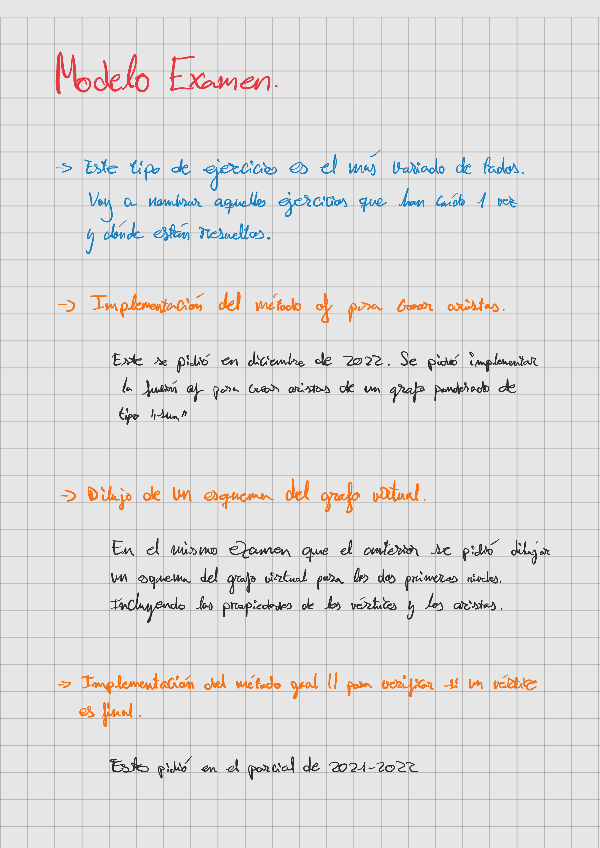 Modelo Examen.
-> Este tipo de ejercicios es el más variado de todos.
Voy a nombrar aquellos ejercicios que han caído 1 vez
y dónde están resueltos.
-> Implementación del método of para crear aristas.
Este se pidió en diciembre de 2022. Se pidió implementar
la función of para crear aristas de un grafo ponderado de
tipo "sum"
-> Dibujo de un esquema del grafo virtual.
En el mismo examen que el anterior se pidió dibujar
un esquema del grafo virtual para los dos primeros niveles.
Incluyendo las propiedades de los vértices y las aristas.
-> Implementación del método goal () para verificar si un vértice
es final.
Este pidió en el parcial de 2021-2022